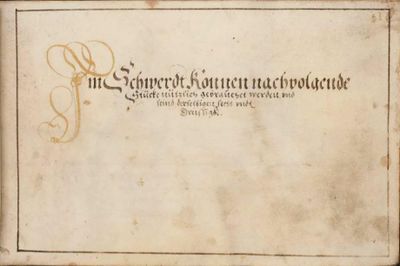 Im Schwerdt Können nachvolgende
Stücke nützlich gebrauchet werden und
seind derselbigen sechs undt
Dreissigk.